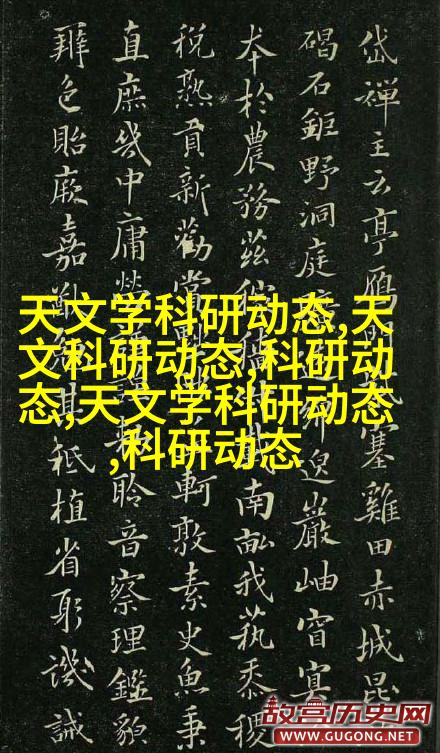 岱禪主云亭鴈塞雞田赤城昆
碣石鉅野洞庭邈巖岫窅冥
本於農務茲南畝我藝黍稷
稅熟貢新勸賞軻敦素史魚秉
直庶幾中庸勞聆音察理鑑貌
辯色貽厥嘉其祗植省躬譏誡
天文学科研动态,天
文科研动态,科研动
态,天文学科研动态
,科研动态
故宫历史网
WWW.GUGONG.NET